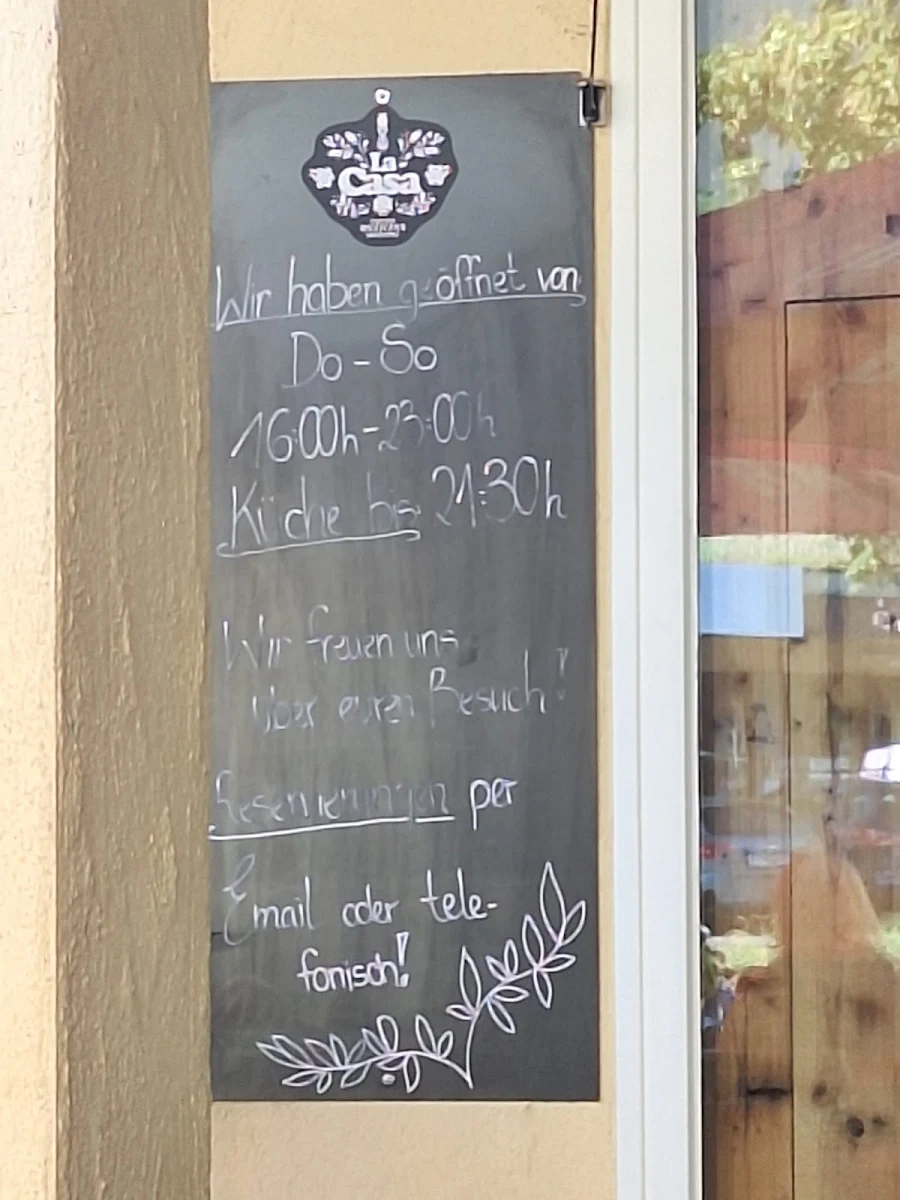 La
Casa
Wir haben geöffnet von
Do - So
16:00h - 23:00h
Küche bis 21:30h
Wir freuen uns
über euren Besuch!
Reservierungen per
Email oder tele-
fonisch!